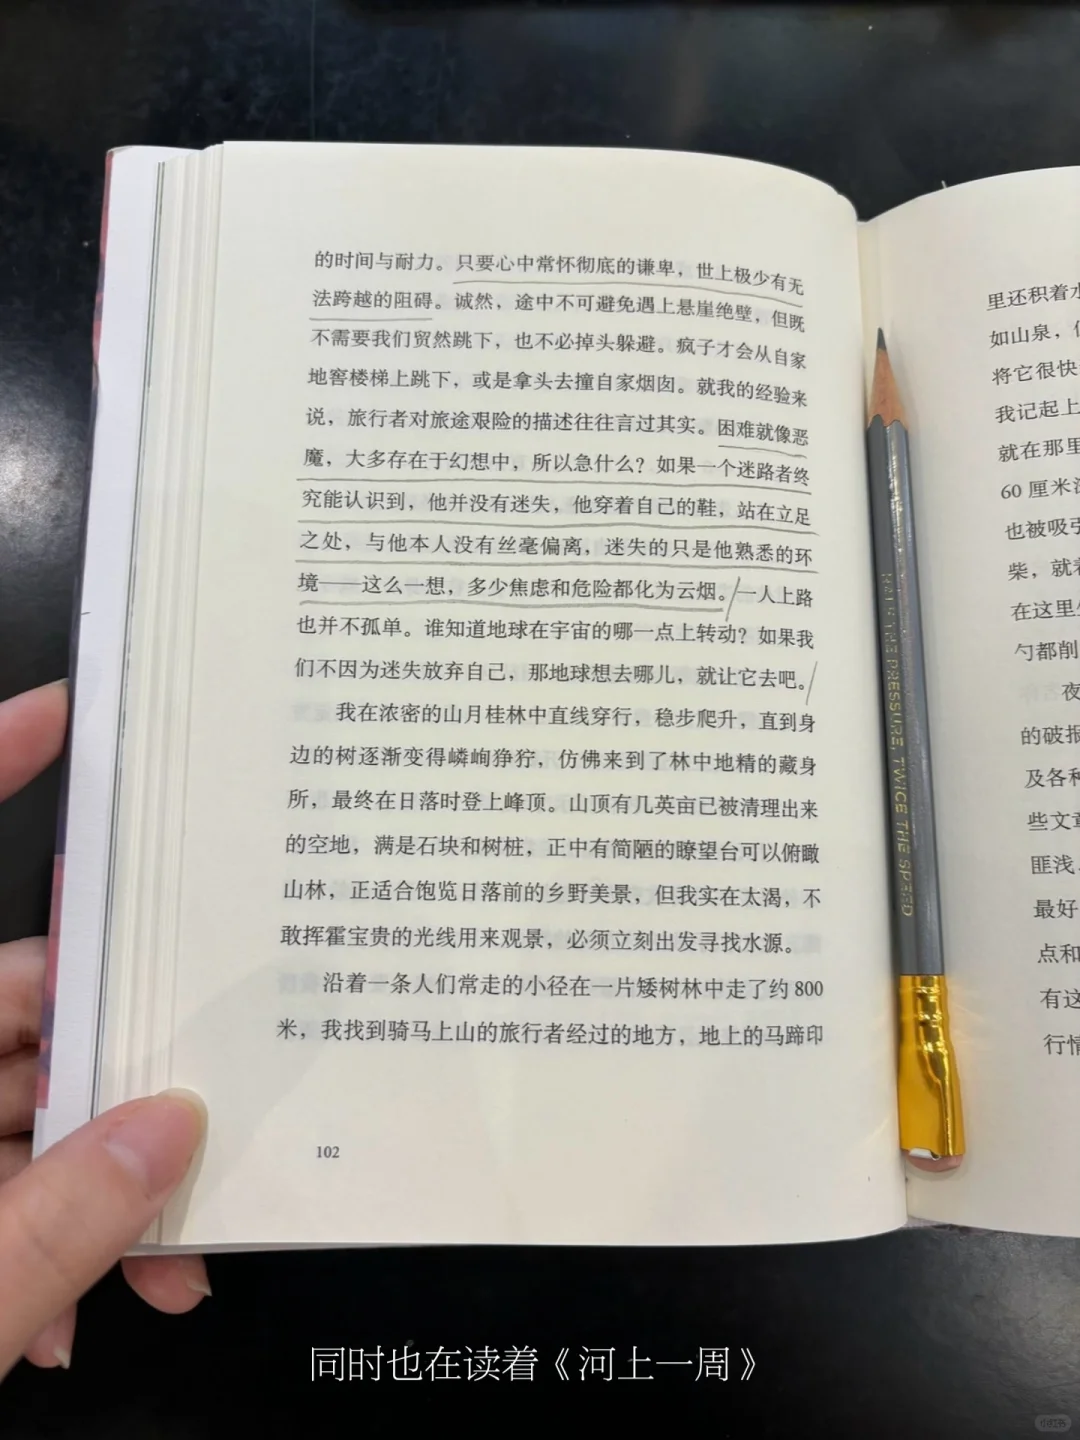 的时间与耐力。只要心中常怀彻底的谦卑，世上极少有无
法跨越的阻碍。诚然，途中不可避免遇上悬崖绝壁，但既
不需要我们贸然跳下，也不必掉头躲避。疯子才会从自家
地窖楼梯上跳下，或是拿头去撞自家烟囱。就我的经验来
说，旅行者对旅途艰险的描述往往言过其实。困难就像恶
魔，大多存在于幻想中，所以急什么？如果一个迷路者终
究能认识到，他并没有迷失，他穿着自己的鞋，站在立足
之处，与他本人没有丝毫偏离，迷失的只是他熟悉的环
境——这么一想，多少焦虑和危险都化为云烟。一人上路
也并不孤单。谁知道地球在宇宙的哪一点上转动？如果我
们不因为迷失放弃自己，那地球想去哪儿，就让它去吧。
我在浓密的山月桂林中直线穿行，稳步爬升，直到身
边的树逐渐变得嶙峋狰狞，仿佛来到了林中地精的藏身
所，最终在日落时登上峰顶。山顶有几英亩已被清理出来
的空地，满是石块和树桩，正中有简陋的瞭望台可以俯瞰
山林，正适合饱览日落前的乡野美景，但我实在太渴，不
敢挥霍宝贵的光线用来观景，必须立刻出发寻找水源。
沿着一条人们常走的小径在一片矮树林中走了约 800
米，我找到骑马上山的旅行者经过的地方，地上的马蹄印
102
里还积着水
如山泉，
将它很快
我记起上
就在那里
60 厘米
也被吸引
柴，就着
在这里
勺都削
夜
的破报
及各种
些文章
匪浅，
最好
点和
有这
行情
HALF THE PRESSURE, TWICE THE SPEED
同时也在读着《河上一周》
小红书